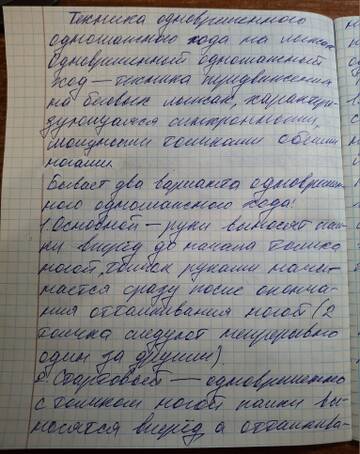 Техника одновременного
одношажного хода на лыжах
Одновременный одношажный
ход — техника передвижения
на беговых лыжах, характери-
зующаяся синхронными,
мощными толчками обеими
ногами.
Бывает два варианта одновремен-
ного одношажного хода:
1. Основной — руки выносят пал-
ки вперёд до начала толчка
ногой, толчок руками начи-
нается сразу после оконча-
ния отталкивания ногой (2
толчка следуют непрерывно
один за другим)
2. Стартовый — одновременно
с толчком ногой палки вы-
носятся вперёд а отталкива-